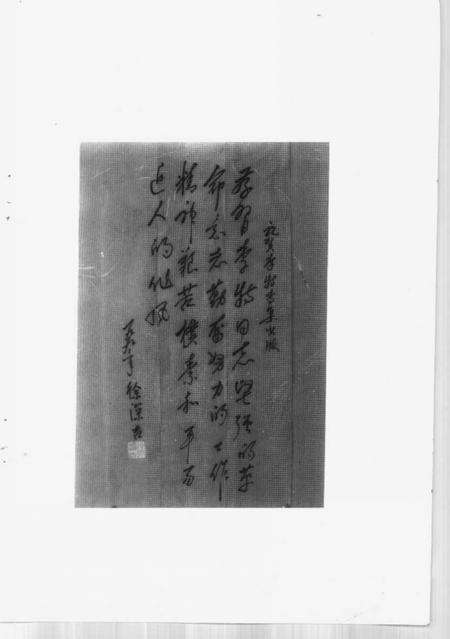 祝贺李特文集出版
学习李特同志坚强的革
命意志勤奋努力的工作
精神艰苦朴素和平易
近人的作风
徐深吉